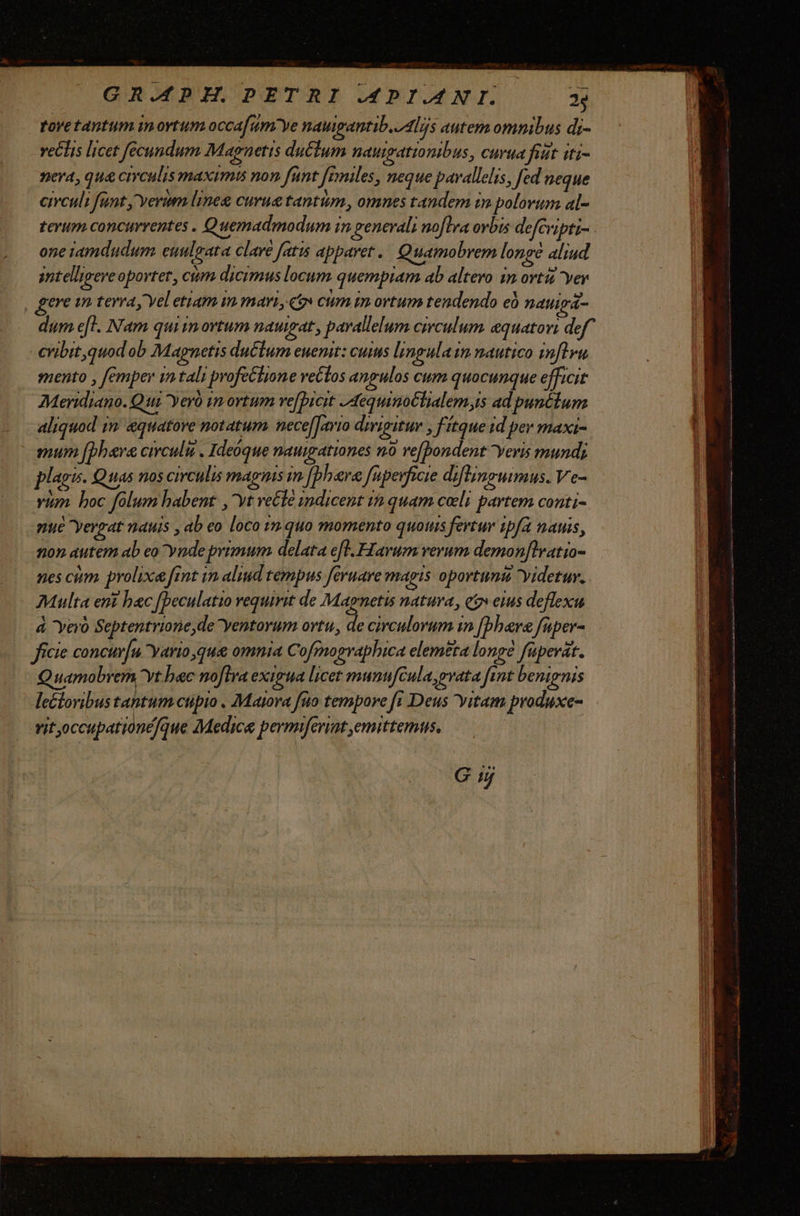 GRAPH. PETRI APIANI. 25
tore tantum in ortum occaſúm ve nauigantib. Alijs autem omnibus di-
rectis licet ſecundum Magnetis ductum nauigationibus, curua fiūt iti-
nera, quæ circulis maximis non ſunt ſimiles, neque parallelis, ſed neque
circuli ſunt, verùm lineæ curuæ tantùm, omnes tandem in polorum al-
terum concurrentes. Quemadmodum in generali noſtra orbis deſcripti-
one iamdudum euulgata clarè ſatis apparet. Quamobrem longè aliud
intelligere oportet, cùm dicimus locum quempiam ab altero in ortū ver
gere in terra, vel etiam in mari, & cùm in ortum tendendo eò nauigā-
dum eſt. Nam qui in ortum nauigat, parallelum circulum æquatori deſ
cribit, quod ob Magnetis ductum euenit: cuius lingula in nautico inſtru
mento, ſemper in tali profectione rectos angulos cum quocunque efficit
Meridiano. Qui verò in ortum reſpicit Aequinoctialem, is ad punctum
aliquod in æquatore notatum neceſſario dirigitur, ſitque id per maxi-
mum ſphæræ circulū. Ideóque nauigationes nō reſpondent veris mundi
plagis. Quas nos circulis magnis in ſphæræ ſuperficie diſtinguimus. Ve-
rùm hoc ſolum habent, vt rectè indicent in quam cœli partem conti-
nuè vergat nauis, ab eo loco in quo momento quouis fertur ipſa nauis,
non autem ab eo vnde primum delata eſt. Harum rerum demonſtratio-
nes cùm prolixæ ſint in aliud tempus ſeruare magis oportunū videtur.
Multa enī hæc ſpeculatio requirit de Magnetis natura, & eius deflexu
à vero Septentrione, de ventorum ortu, de circulorum in ſphæræ ſuper-
ficie concurſu vario, quæ omnia Coſmographica elemēta longè ſuperāt.
Quamobrem vt hæc noſtra exigua licet munuſcula, grata ſint benignis
lectoribus tantum cupio. Maiora ſuo tempore ſi Deus vitam produxe-
rit, occupationéſque Medicæ permiſerint, emittemus.
G iij